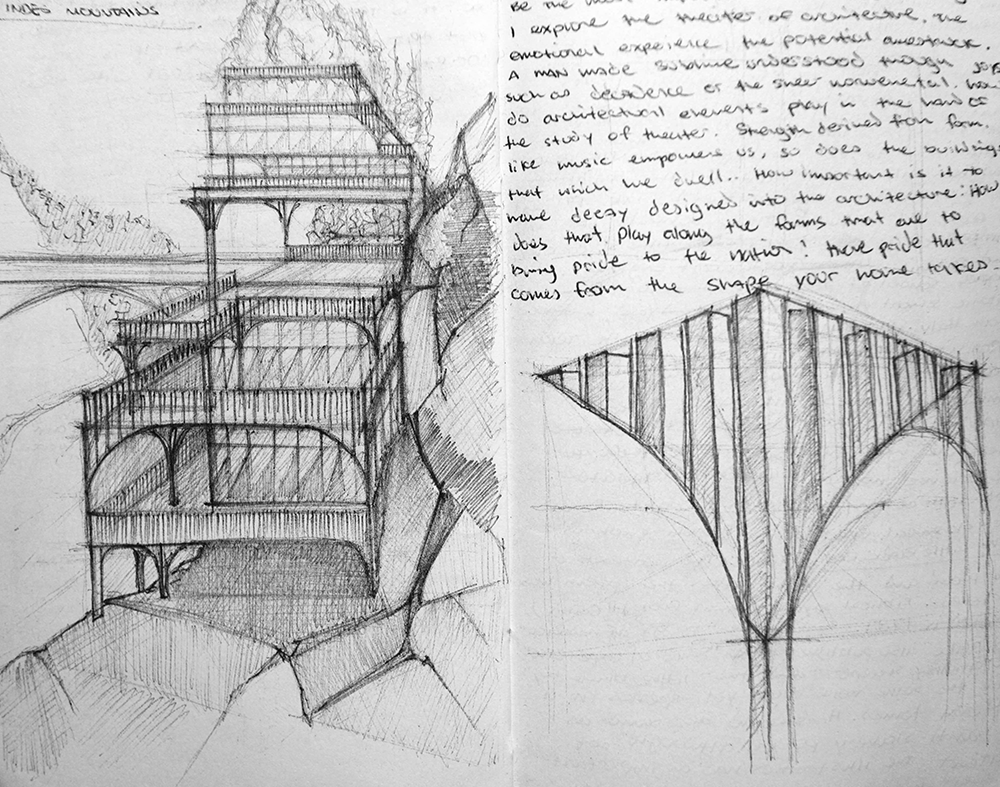 INDES MOUNTAINS
Be the most
I explore the theater of architecture. The
emotional experience, the potential awestruck.
A man made sublime understood though
such as decadence or the sheer nonvenetal. How
do architectural elements play in the hand of
the study of theater. Strength derived from form.
like music empowers us, so does the buildings
that which we dwell.. How important is it to
have decay designed into the architecture? How
does that play along the forms that are to
bring pride to the nation? There pride that
comes from the shape your home takes